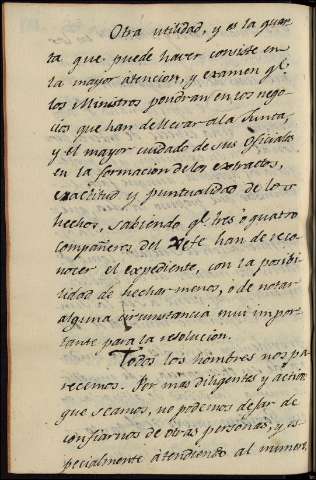 Otra utilidad, y es la quar-
ta que puede haver consiste en
la mayor atencion, y examen q.e
los Ministros pondran en los nego-
cios que han de llevar a la Junta,
y el mayor cuidado de sus Oficiales
en la formacion de los extractos,
exactitud y puntualidad de los
hechos, sabiendo q.e tres o quatro
compañeros del Xefe han de reco-
nocer el expediente, con la posibi-
lidad de hechar menos, o de notar
alguna circunstancia mui impor-
tante para la resolucion.
Todos los hombres nos pa-
recemos. Por más diligentes y activos
que seamos, no podemos dejar de
confiarnos de otras personas, y es-
pecialmente atendiendo al inmen-